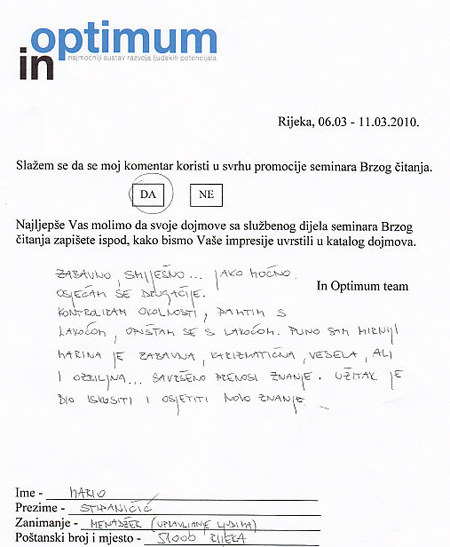 in optimum
najmoćniji sustav razvoja ljudskih potencijala
Rijeka, 06.03 - 11.03.2010.
Slažem se da se moj komentar koristi u svrhu promocije seminara Brzog čitanja.
DA NE
Najljepše Vas molimo da svoje dojmove sa službenog dijela seminara Brzog
čitanja zapišete ispod, kako bismo Vaše impresije uvrstili u katalog dojmova.
In Optimum team
ZABAVNO, SMIJEŠNO... JAKO MOĆNO.
OSJEĆAM SE DRUGAČIJE.
KONTROLIRAM OKOLNOSTI, PAMTIM S
LAKOĆOM, OPUŠTAM SE S LAKOĆOM. PUNO SAM MIRNIJI
MARINA JE ZABAVNA, KARIZMATIČNA, VESELA, ALI
I OZBILJNA... SAVRŠENO PRENOSI ZNANJE. UŽITAK JE
BIO ISKUSITI I OSJETITI NOVO ZNANJE.
Ime - MARIO
Prezime - STIPANIČIĆ
Zanimanje - MENADŽER (UPRAVLJANJE LJUDIMA)
Poštanski broj i mjesto - 51000 RIJEKA